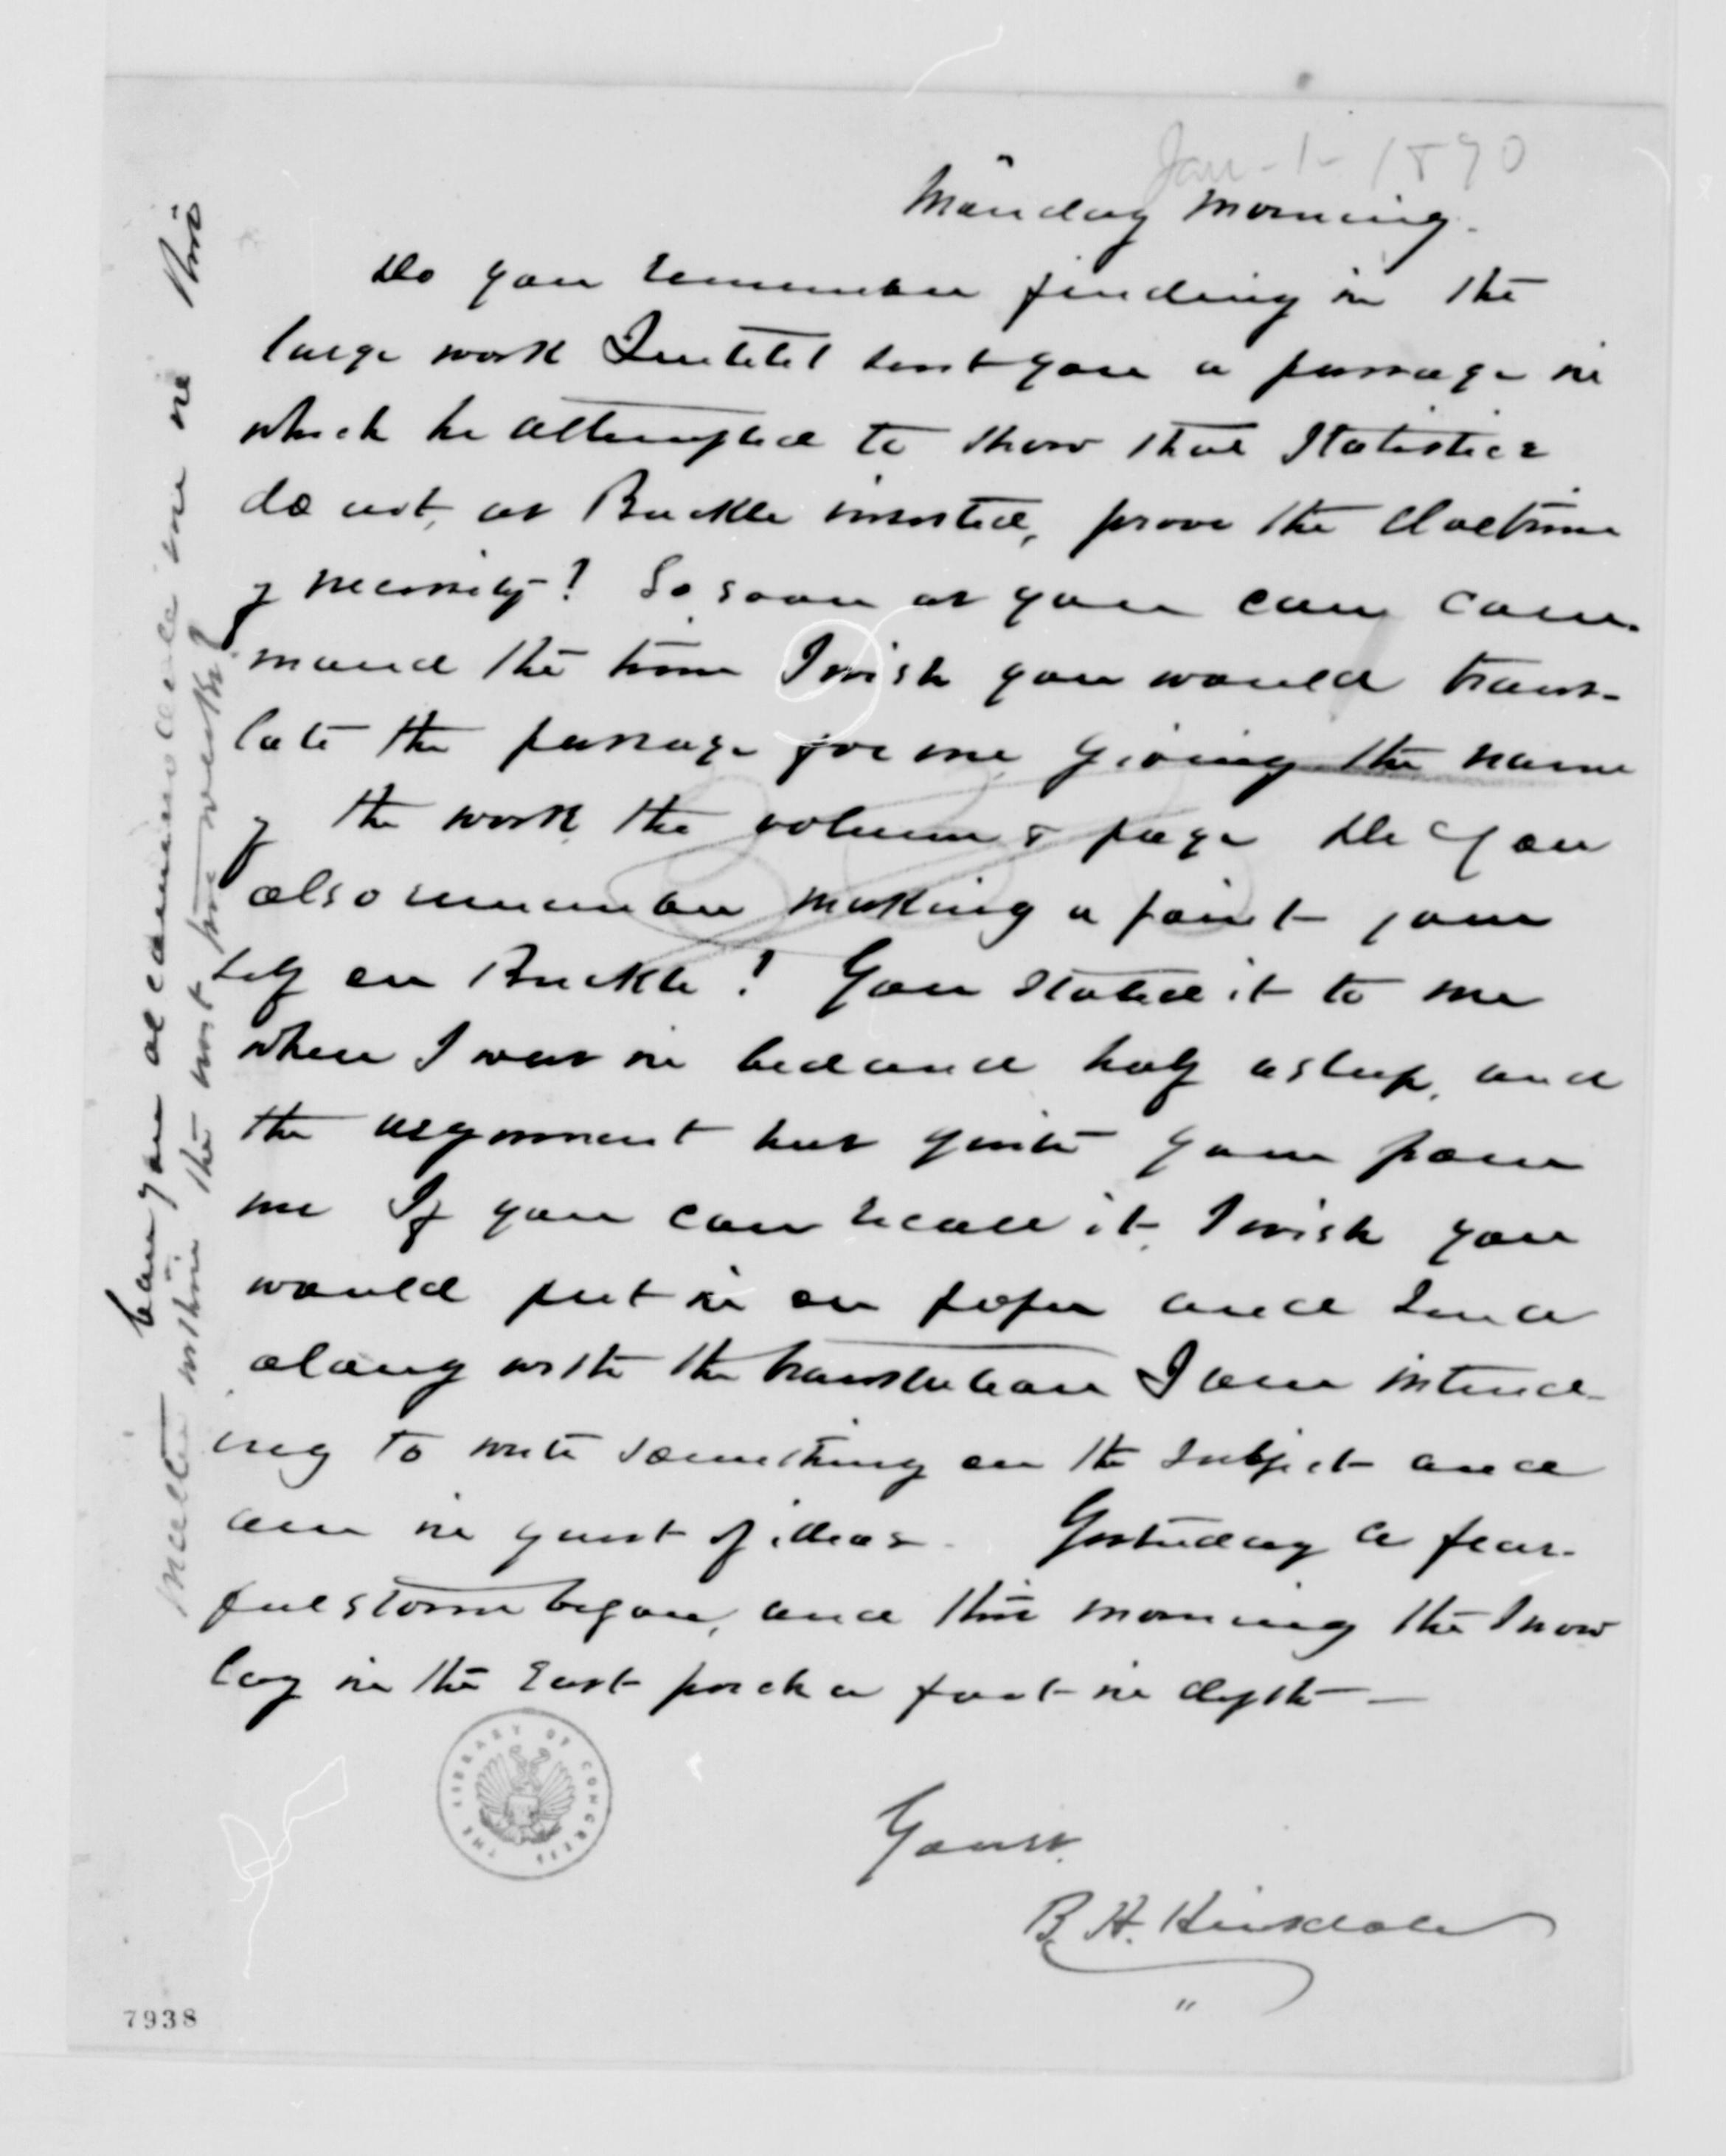 Jan - 1 - 1870
Monday Morning.
Do you remember finding in the
large work Quetelet sent you a passage in
which he attempted to show that Statistics
do not, as Buckle insisted, prove the doctrine
of necessity? So soon as you can com-
mand the time I wish you would trans-
late the passage for me giving the name
of the work, the volume & page Do you
also remember making a point your
self on Buckle? You stated it to me
when I was in bed and half asleep, and
the argument has quite gone from
me If you can recall it, I wish you
would put it on paper and send
along with the translation I am intend-
ing to write something on the subject and
am in quest of ideas. Yesterday a fear-
ful storm began, and this morning the snow
lay in the East porch a foot in depth —
Yours.
B. A. Hinsdale
Can you accommodate me in this
matter within the next two weeks?
THE LIBRARY OF CONGRESS
7938